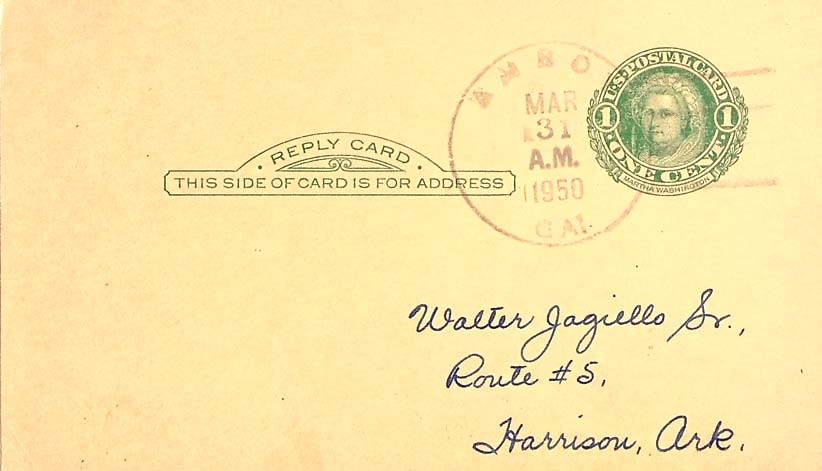 AMBO
MAR
31
A.M.
1950
CAL
U.S. POSTAL CARD
1 1
ONE CENT
MARTHA WASHINGTON
· REPLY CARD ·
THIS SIDE OF CARD IS FOR ADDRESS
Walter Jagiello Sr.,
Route #5,
Harrison, Ark.